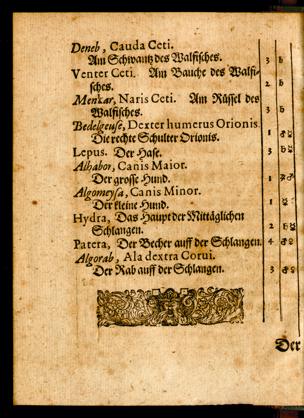 Deneb, Cauda Ceti.
Am Schwantz des Walfisches. 3 ♄
Venter Ceti. Am Bauche des Walfi-
sches. 2 ♄
Menkar, Naris Ceti. Am Rüssel des
Walfisches. 3 ♄
Bedelgeuse, Dexter humerus Orionis.
Die rechte Schulter Orionis. 1
Lepus. Der Hase. 3
Alhabor, Canis Maior.
Der grosse Hund. 1
Algomeysa, Canis Minor.
Der kleine Hund. 1
Hydra, Das Haupt der Mittäglichen
Schlangen. 2
Patera, Der Becher auff der Schlangen. 4
Algorab, Ala dextra Corui.
Der Rab auff der Schlangen. 3
Der